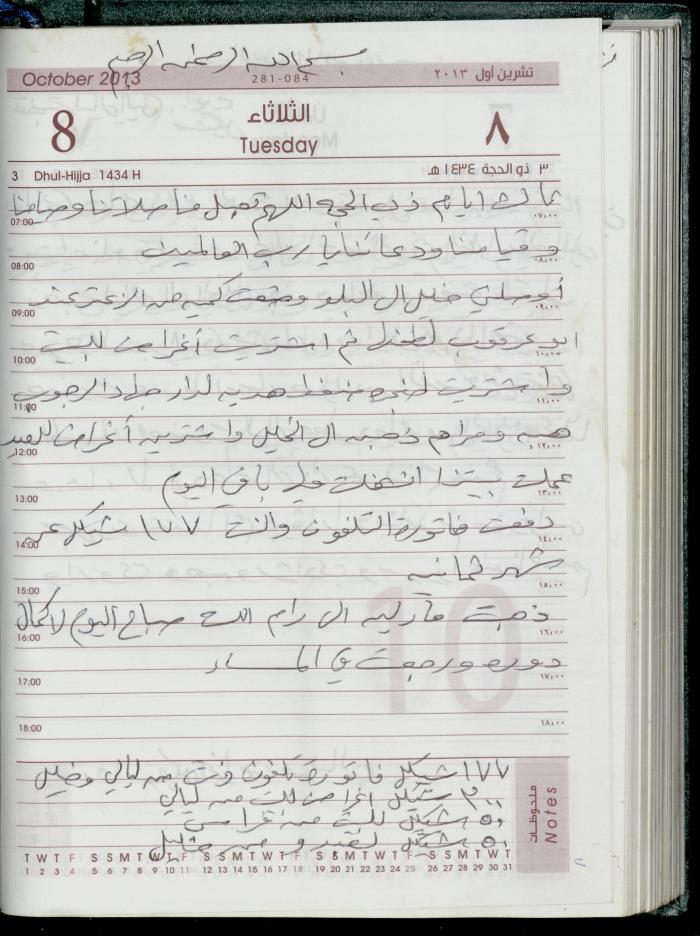 بسم الله الرحمن الرحيم
October 2013 281-084 تشرين أول ٢٠١٣
8 الثلاثاء ٨
Tuesday
3 Dhul-Hijja 1434 H ٣ ذو الحجة ١٤٣٤ هـ
ثالث ايام ذي الحجة اللهم تقبل منا صلاتنا وصيامنا
07:00 ٠٧:٠٠
وقيامنا ودعائنا يا رب العالمين
08:00 ٠٨:٠٠
أوصلني خليل ال البلد وضعت كميه من الزعتر عند
09:00 ٠٩:٠٠
ابو عرقوب ثم اشتريت أغراض للبيت
10:00 ١٠:٠٠
واشتريت هديه لدار
11:00 ١١:٠٠
هبه ومرام ذهبه ال الخليل واشترين أغراض للعيد
12:00 ١٢:٠٠
عملت بيتزا انشغلت فيها باقي اليوم
13:00 ١٣:٠٠
دفعت فاتورة التلفون والنت ١٧٧ شيكل عن
14:00 ١٤:٠٠
شهر ثمانيه
15:00 ١٥:٠٠
ذهبت مارليه ال رام الله صباح اليوم لاكمال
16:00 ١٦:٠٠
دوره ورجعت في المساء
17:00 ١٧:٠٠
18:00 ١٨:٠٠
10
١٧٧ شيكل فاتورة تلفون ونت من ليالي وخليل
٣٠٠ شيكل اغراض للبيت من ليالي
٥٠ شيكل للبيت من فراس
٥٠ شيكل من خليل
ملحوظات
Notes
T W T F S S M T W T F S S M T W T F S S M T W T F S S M T W T
1 2 3 4 5 6 7 8 9 10 11 12 13 14 15 16 17 18 19 20 21 22 23 24 25 26 27 28 29 30 31